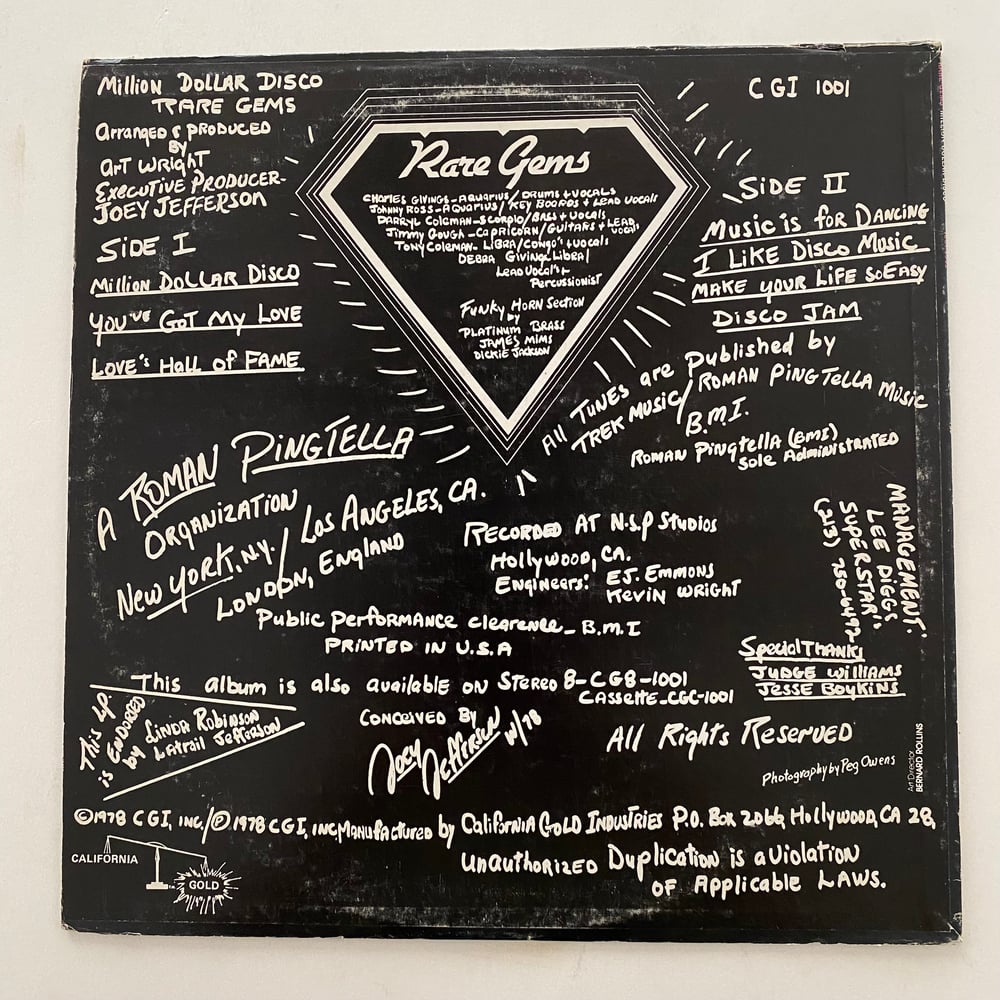 Million Dollar Disco
Rare Gems
Arranged & Produced
by
Art Wright
Executive Producer-
Joey Jefferson
Side I
Million Dollar Disco
You've Got My Love
Love's Hall of Fame
Rare Gems
Charles Givings-Aquarius/Drums + Vocals
Johnny Ross-Aquarius/Key Boards + Lead Vocals
Darryl Coleman-Scorpio/Bass + Vocals
Jimmy Gough-Capricorn/Guitars + Lead Vocals
Tony Coleman-Libra/Congo's + Vocals
Debra Givings Libra/
Lead Vocal's +
Percussionist
Funky Horn Section
by
Platinum Brass
James Mims
Dickie Jackson
CGI 1001
Side II
Music is for Dancing
I Like Disco Music
Make Your Life So Easy
Disco Jam
All Tunes are Published by
Trek Music/Roman PingTella Music
B.M.I.
Roman Pingtella (BMI)
Sole Administrated
A Roman PingTella
Organization
New York, N.Y./Los Angeles, CA.
London, England
Recorded at N.S.P Studios
Hollywood, CA.
Engineers: E.J. Emmons
Kevin Wright
Management:
Lee Diggs
Superstar's
(213)
Public Performance clearence - B.M.I
Printed in U.S.A
Special Thanks
Judge Williams
Jesse Boykins
This album is also available on Stereo 8-CG8-1001
Cassette-CGC-1001
This LP
is Endorsed
by Linda Robinson
Latrail Jefferson
Conceived By
Joey Jefferson W/78
All Rights Reserved
Photography by Peg Owens
Art Director
BERNARD ROLLINS
©1978 CGI, Inc./℗1978 CGI, Inc Manufactured by California Gold Industries P.O. Box 2066, Hollywood, CA 28,
Unauthorized Duplication is a Violation
of Applicable Laws.
CALIFORNIA
GOLD